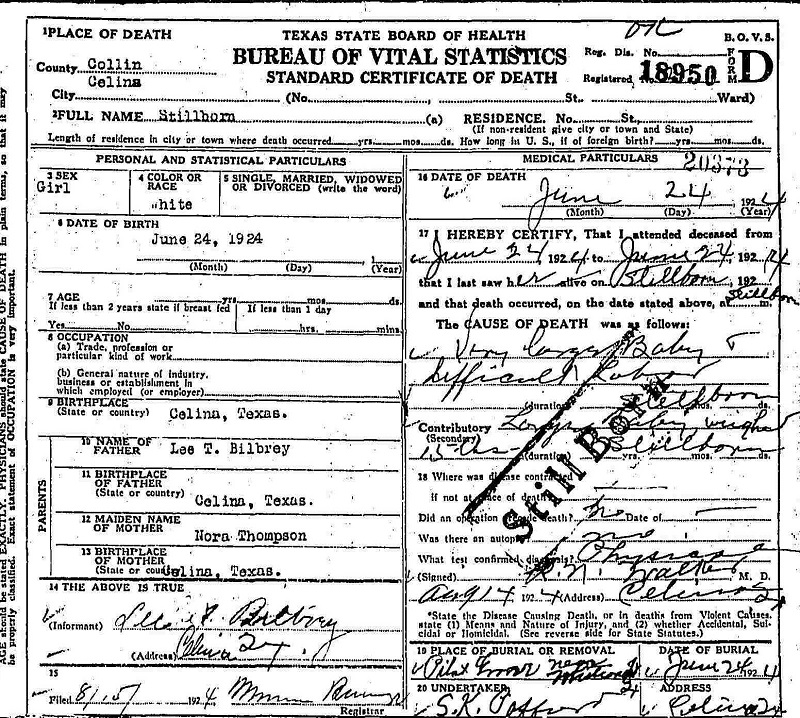 1PLACE OF DEATH
TEXAS STATE BOARD OF HEALTH
BUREAU OF VITAL STATISTICS
STANDARD CERTIFICATE OF DEATH
B. O. V. S.
FORM D
Reg. Dis. No.
Registered No. 18950
County Collin
Celina
City (No. , St., Ward)
2FULL NAME Stillborn (a) RESIDENCE. No. St.,
(If non-resident give city or town and State)
Length of residence in city or town where death occurred yrs. mos. ds. How long in U. S., if of foreign birth? yrs. mos. ds.
PERSONAL AND STATISTICAL PARTICULARS
3 SEX
Girl
4 COLOR OR RACE
White
5 SINGLE, MARRIED, WIDOWED OR DIVORCED (write the word)
6 DATE OF BIRTH
June 24, 1924
(Month) (Day) (Year)
7 AGE yrs. mos. ds.
If less than 2 years state if breast fed
If less than 1 day
Yes No hrs. mins.
8 OCCUPATION
(a) Trade, profession or
particular kind of work
(b) General nature of industry.
business or establishment in
which employed (or employer)
9 BIRTHPLACE
(State or country) Celina, Texas.
PARENTS
10 NAME OF
FATHER Lee T. Bilbrey
11 BIRTHPLACE
OF FATHER
(State or country) Celina, Texas.
12 MAIDEN NAME
OF MOTHER Nora Thompson
13 BIRTHPLACE
OF MOTHER
(State or country) Celina, Texas.
14 THE ABOVE IS TRUE
(Informant) Bilbrey
(Address) Celina Tex
15
Filed 1924
Registrar
MEDICAL PARTICULARS 20373
16 DATE OF DEATH
June 24 1924
(Month) (Day) (Year)
17 I HEREBY CERTIFY, That I attended deceased from
June 24 1924 to June 24 1924
that I last saw her alive on Stillborn, 192
and that death occurred, on the date stated above, at Stillborn m.
The CAUSE OF DEATH was as follows:
Very large Baby &
Difficult Labor
(duration) Stillborn mos. ds.
Contributory Large Baby weighed
(Secondary)
15 lbs (duration) yrs. Stillborn mos. ds.
Still Born
18 Where was disease contracted
if not at place of death?
Did an operation precede death? no Date of
Was there an autopsy? no
What test confirmed diagnosis? Physical
(Signed) Walker M. D.
Aug 14 1924 (Address) Celina
*State the Disease Causing Death, or in deaths from Violent Causes,
state (1) Means and Nature of Injury, and (2) whether Accidental, Sui-
cidal or Homicidal. (See reverse side for State Statutes.)
19 PLACE OF BURIAL OR REMOVAL
Pilot Grove near
DATE OF BURIAL
June 24 1924
20 UNDERTAKER
S.K.
ADDRESS
Celina
AGE should be stated EXACTLY. PHYSICIANS should state CAUSE OF DEATH in plain terms, so that it may
be properly classified. Exact statement of OCCUPATION is very important.